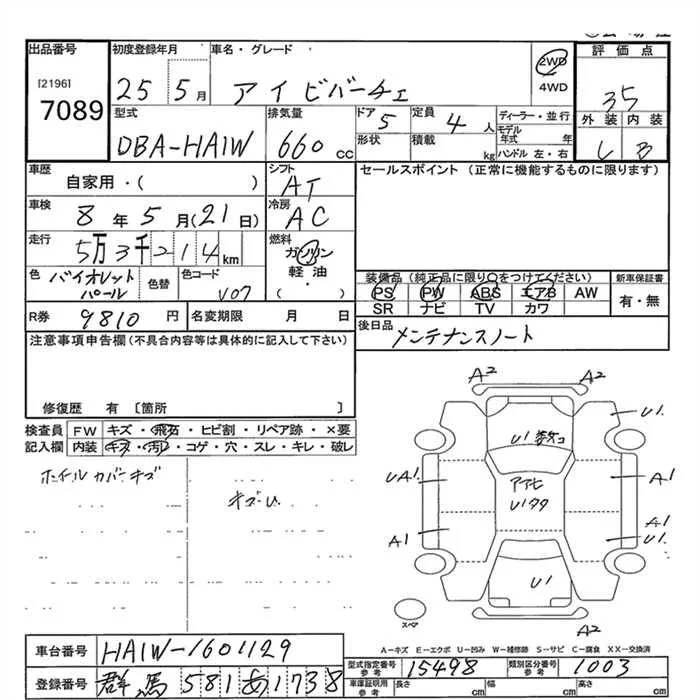 出品番号 初度登録年月 車名・グレード 評価点
[2196] 7089 25 5月 アイビバーチェ 2WD 4WD 35
型式 排気量 ドア 定員 ディーラー・並行 外装 内装
DBA-HA1W 660cc 5 4人 モデル年式 年 B
形状 積載 kg ハンドル 左・右
車歴 シフト セールスポイント(正常に機能するものに限ります)
自家用・( ) AT
車検 冷房
8年5月(21日) AC
走行 燃料
5万3千214km ガソリン
軽油
( )
色 バイオレットパール 色替 色コード V07
装備品(純正品に限り○をつけてください) 新車保証書
PS PW ABS エアB AW 有・無
SR ナビ TV カワ
R券 9810円 名変期限 月 日
後日品 メンテナンスノート
注意事項申告欄(不具合内容等は具体的に記入して下さい)
修復歴 有 [箇所 ]
検査員 FW キズ・飛石・ヒビ割・リペア跡・×要
記入欄 内装 キズ・汚レ・コゲ・穴・スレ・キレ・破レ
ホイールカバーキズ
キズ・U
A2 A2
U1
U1
UA1 U1 A1
A1 A1
U1
U1
A2 A2
スペア
A-キズ E-エクボ U-凹み W-補修跡 S-サビ C-腐食 XX-交換済
車台番号 HA1W-1601129
型式指定番号 参考 15498 類別区分番号 参考 1003
登録番号 群馬 581 あ1738
車庫証明用 参考 長さ cm 幅 cm 高さ cm